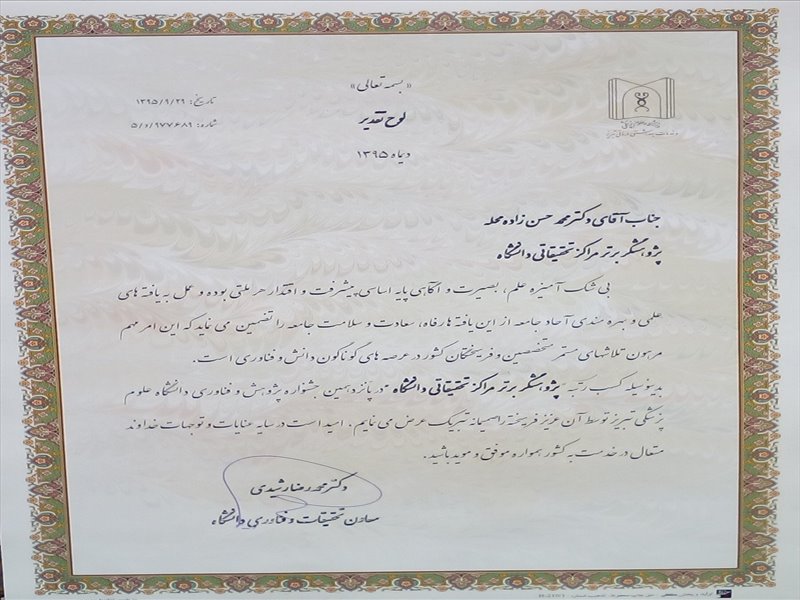 «بسمه تعالی»
تاریخ: ۱۳۹۵/۹/۲۹
لوح تقدیر
شماره: ۵/د/۹۷۷۶۸۹
دیماه ۱۳۹۵
و خدمات بهداشتی درمانی تبریز
جناب آقای دکتر محمد حسن زاده محله
پژوهشگر برتر مراکز تحقیقاتی دانشگاه
بی شک آمیزه علم، بصیرت و آگاهی پایه اساسی پیشرفت و اقتدار هر ملتی بوده و عمل به یافته های
علمی و بهره مندی آحاد جامعه از این یافته ها رفاه، سعادت و سلامت جامعه را تضمین می نماید که این امر مهم
مرهون تلاشهای مستمر متخصصین و فرهیختگان کشور در عرصه های گوناگون دانش و فناوری است.
بدینوسیله کسب رتبه پژوهشگر برتر مراکز تحقیقاتی دانشگاه در پانزدهمین جشنواره پژوهش و فناوری دانشگاه علوم
پزشکی تبریز توسط آن عزیز فرهیخته را صمیمانه تبریک عرض می نمایم. امید است در سایه عنایات و توجهات خداوند
متعال در خدمت به کشور همواره موفق و موید باشید.
دکتر محمد رضا رشیدی
معاون تحقیقات و فناوری دانشگاه